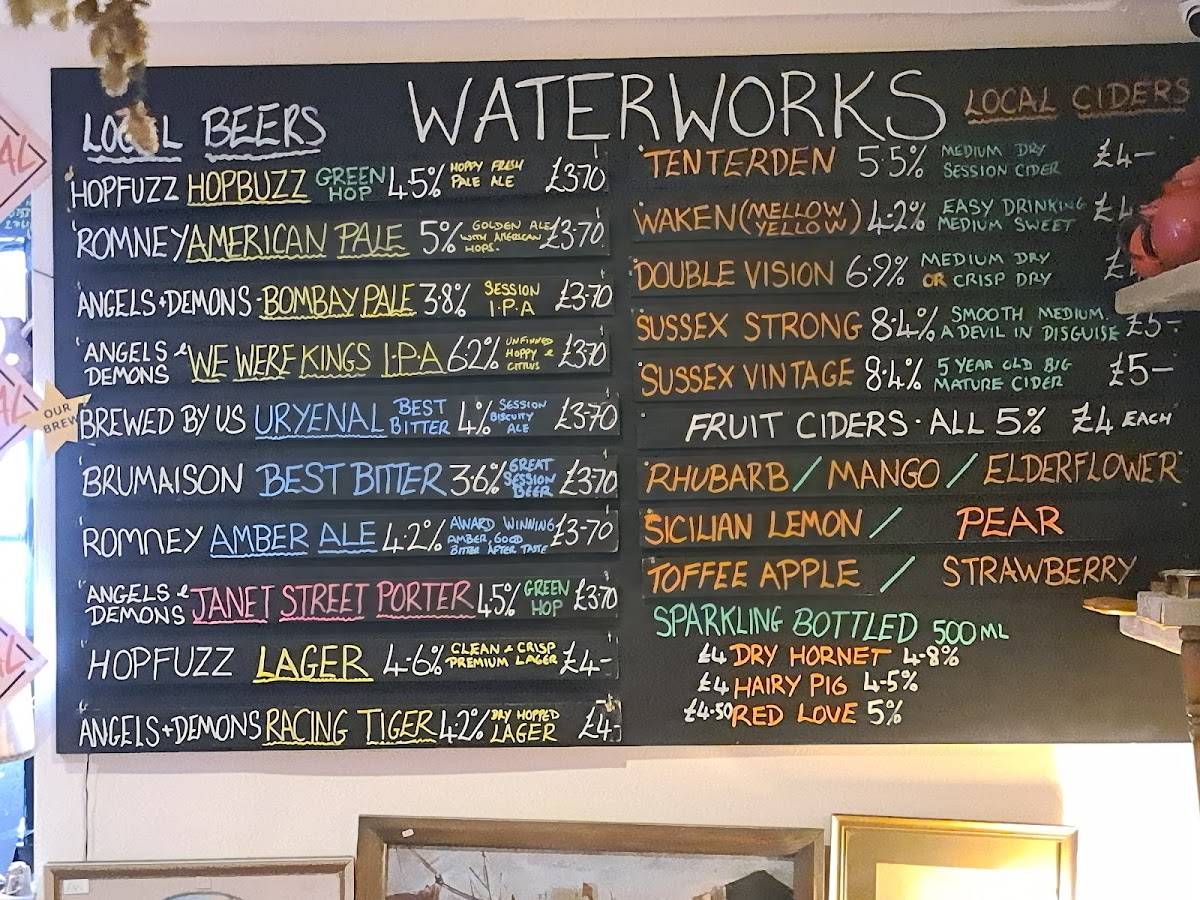 WATERWORKS
LOCAL BEERS
HOPFUZZ HOPBUZZ GREEN HOP 4.5% HOPPY FRESH PALE ALE £3.70
ROMNEY AMERICAN PALE 5% GOLDEN ALE WITH AMERICAN HOPS. £3.70
ANGELS+DEMONS-BOMBAY PALE 3.8% SESSION I.P.A £3.70
ANGELS & DEMONS WE WERE KINGS I.P.A 6.2% UNFINNED HOPPY & CITRUS £3.70
OUR BREW
BREWED BY US URYENAL BEST BITTER 4% SESSION BISCUITY ALE £3.70
BRUMAISON BEST BITTER 3.6% GREAT SESSION BEER £3.70
ROMNEY AMBER ALE 4.2% AWARD WINNING AMBER, GOOD BITTER AFTER TASTE £3.70
ANGELS & DEMONS JANET STREET PORTER 4.5% GREEN HOP £3.70
HOPFUZZ LAGER 4.6% CLEAN & CRISP PREMIUM LAGER £4-
ANGELS+DEMONS RACING TIGER 4.2% DRY HOPPED LAGER £4-
LOCAL CIDERS
TENTERDEN 5.5% MEDIUM DRY SESSION CIDER £4-
WAKEN (MELLOW YELLOW) 4.2% EASY DRINKING MEDIUM SWEET £4-
DOUBLE VISION 6.9% MEDIUM DRY OR CRISP DRY £
SUSSEX STRONG 8.4% SMOOTH MEDIUM. A DEVIL IN DISGUISE £5-
SUSSEX VINTAGE 8.4% 5 YEAR OLD BIG MATURE CIDER £5-
FRUIT CIDERS · ALL 5% £4 EACH
RHUBARB / MANGO / ELDERFLOWER
SICILIAN LEMON / PEAR
TOFFEE APPLE / STRAWBERRY
SPARKLING BOTTLED 500ML
£4 DRY HORNET 4.8%
£4 HAIRY PIG 4.5%
£4.50 RED LOVE 5%